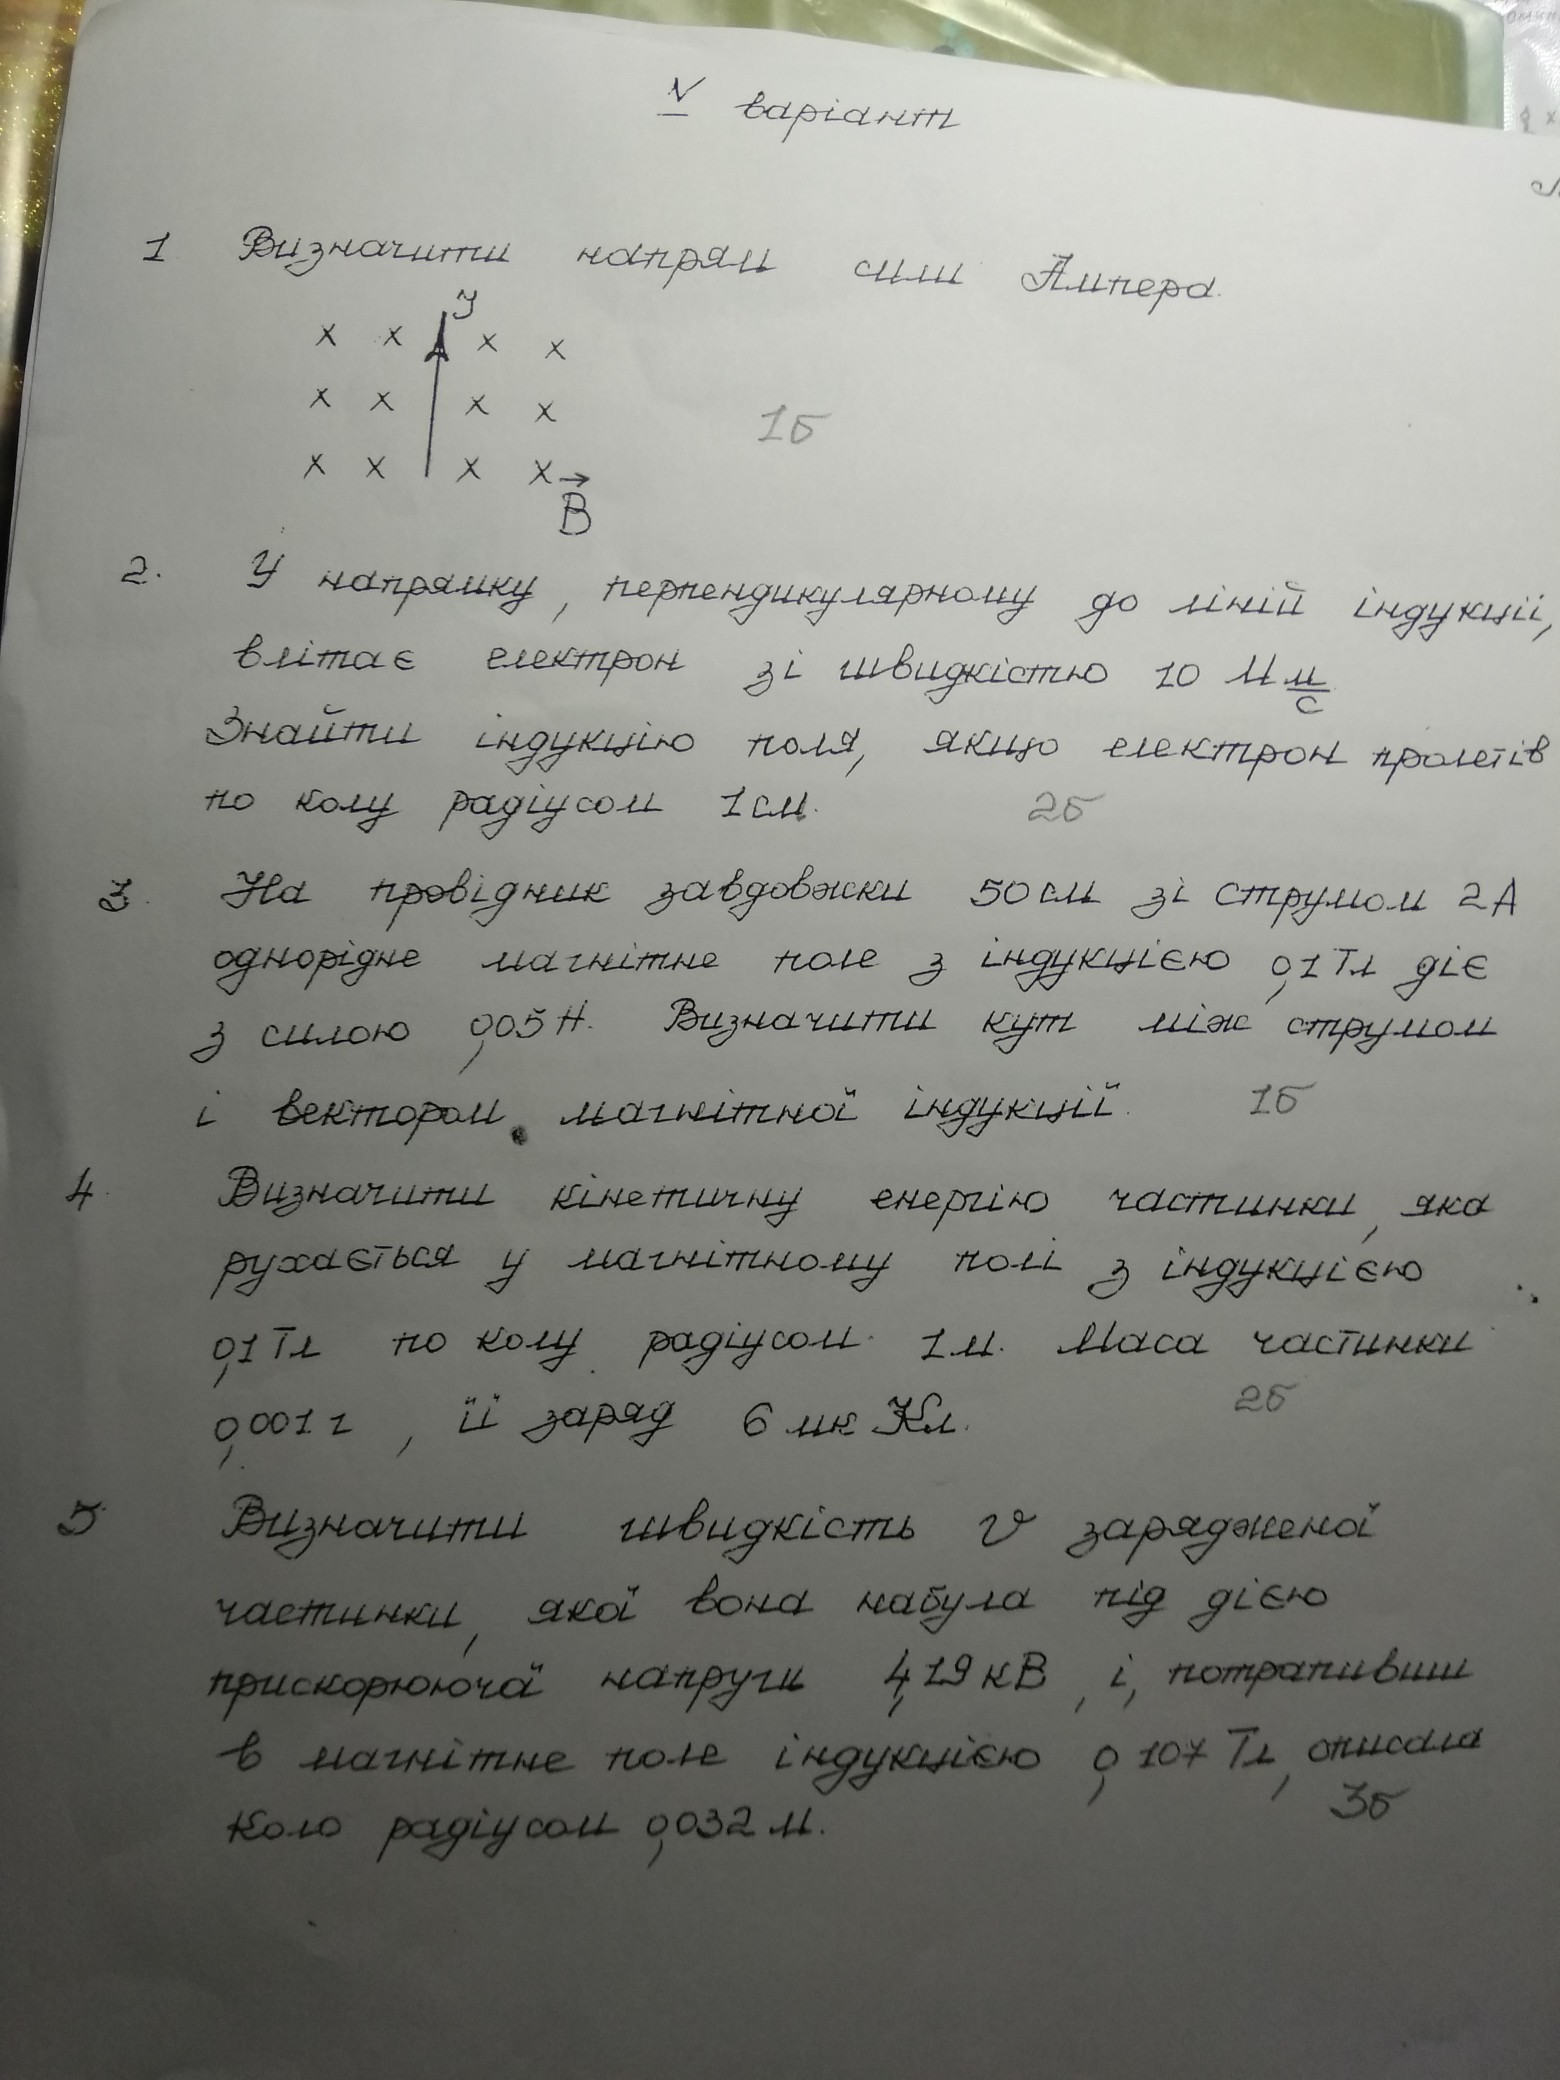 V варіант
1 Визначити напрям сили Ампера.
У
х х х х
х х х х
1б
х х х х
B
2. У напрямку, перпендикулярному до ліній індукції,
влітає електрон зі швидкістю 10 М м/с
Знайти індукцію поля, якщо електрон пролетів
по колу радіусом 1 см. 2б
3. На провідник завдовжки 50 см зі струмом 2 А
однорідне магнітне поле з індукцією 0,1 Тл діє
з силою 0,05 Н. Визначити кут між струмом
і вектором магнітної індукції. 1б
4. Визначити кінетичну енергію частинки, яка
рухається у магнітному полі з індукцією
0,1 Тл по колу радіусом 1 м. Маса частинки
0,001 г, її заряд 6 мк Кл. 2б
5 Визначити швидкість v зарядженої
частинки, якої вона набула під дією
прискорюючої напруги 4,19 кВ, і, потрапивши
в магнітне поле індукцією 0,107 Тл, описала
коло радіусом 0,032 м. 3б